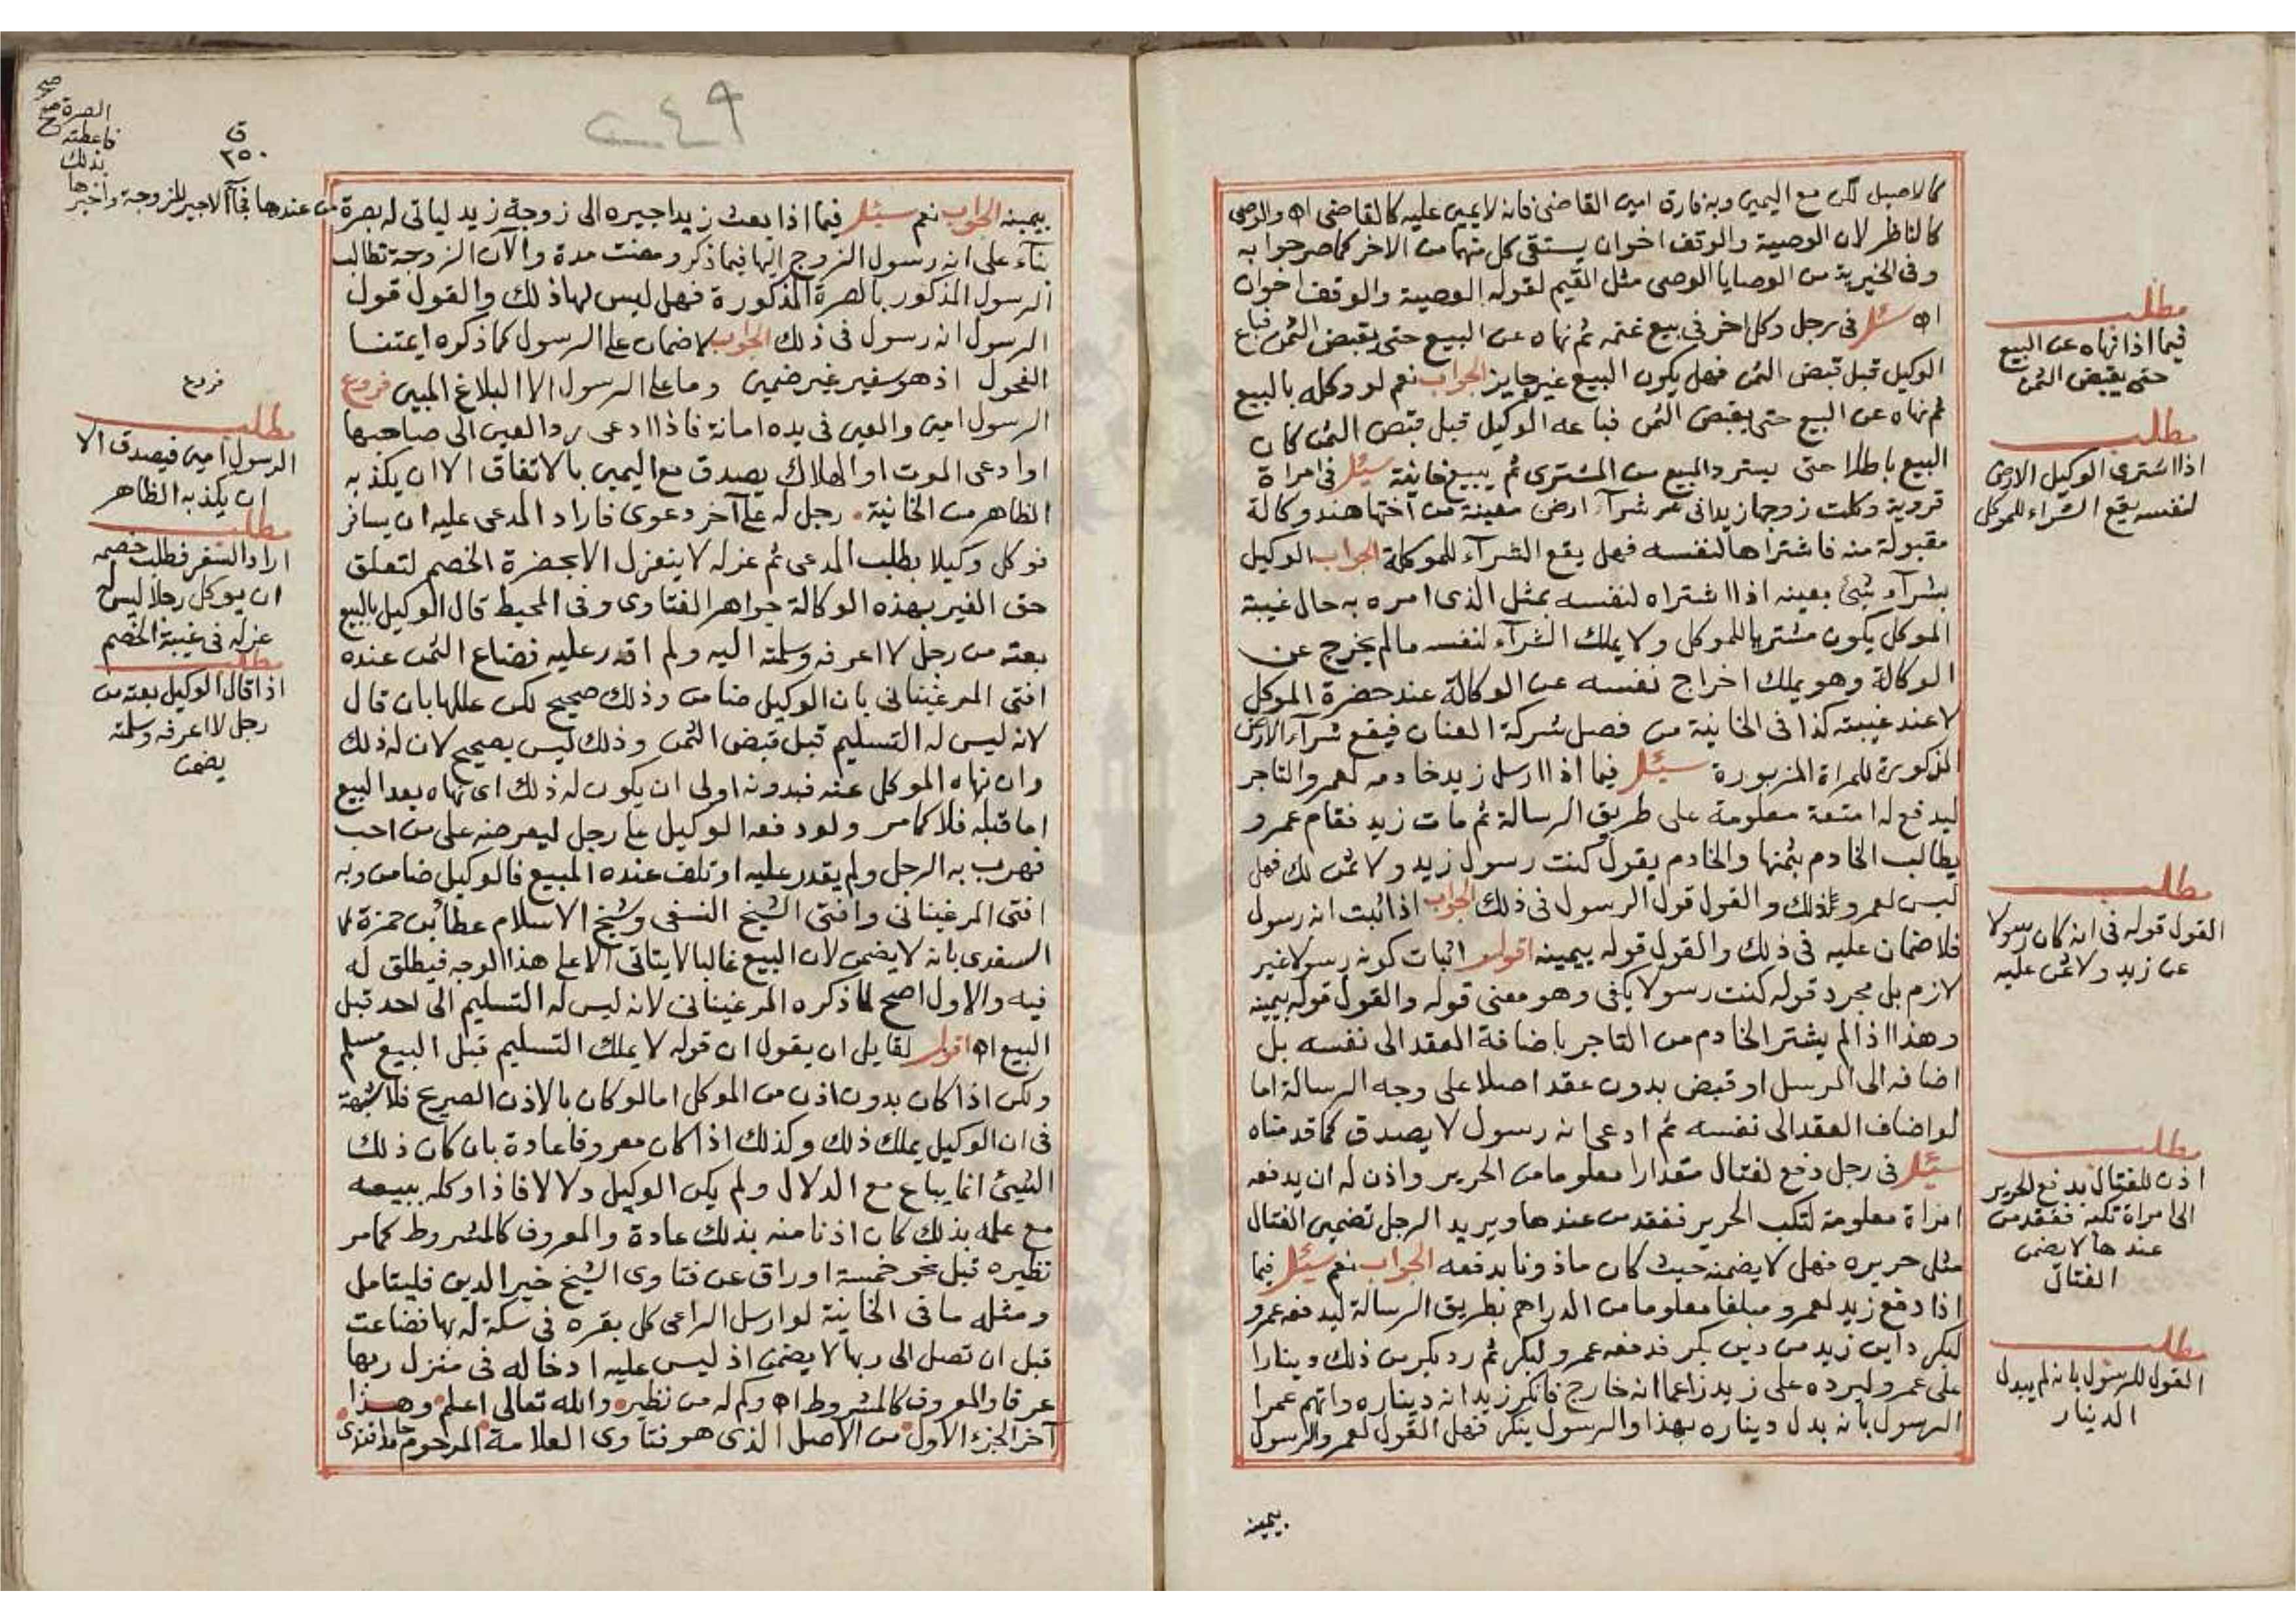 كالاصيل لكن مع اليمين وبه فارق امين القاضى فانه لا يمين عليه كالقاضى اه والوصى
كالناظر لان الوصية والوقف اخوان يستقى كل منهما من الاخر كما صرحوا به
وفى الخيرية من الوصايا الوصى مثل القيم لقوله الوصية والوقف اخوان
اه سئل فى رجل وكل اخر فى بيع غنمه ثم نهاه عن البيع حتى يقبض الثمن فباع
الوكيل قبل قبض الثمن فهل يكون البيع غير جايز الجواب نعم لو وكله بالبيع
ثم نهاه عن البيع حتى يقبض الثمن فباعه الوكيل قبل قبض الثمن كان
البيع باطلا حتى يسترد المبيع من المشترى ثم يبيع خانية سئل فى امراة
قروية وكلت زوجها زيدا فى شرآء ارض معينة من اختها هند وكالة
مقبولة منه فاشتراها لنفسه فهل يقع الشرآء للموكلة الجواب الوكيل
بشرآء شئ بعينه اذا اشتراه لنفسه بمثل الذى امره به حال غيبة
الموكل يكون مشتريا للموكل ولا يملك الشرآء لنفسه ما لم يخرج عن
الوكالة وهو يملك اخراج نفسه عن الوكالة عند حضرة الموكل
لا عند غيبته كذا فى الخانية من فصل شركة العنان فيقع شرآء الارض
المذكورة للمراة المزبورة سئل فيما اذا ارسل زيد خادمه لعمرو التاجر
ليدفع له امتعة معلومة على طريق الرسالة ثم مات زيد فقام عمرو
يطالب الخادم بثمنها والخادم يقول كنت رسول زيد ولا ثمن لك فهل
ليس لعمرو ذلك والقول قول الرسول فى ذلك الجواب اذا ثبت انه رسول
فلا ضمان عليه فى ذلك والقول قوله بيمينه اقول اثبات كونه رسولا غير
لازم بل مجرد قوله كنت رسولا يكفى وهو معنى قوله والقول قوله بيمينه
وهذا اذا لم يشتر الخادم من التاجر باضافة العقد الى نفسه بل
اضافه الى المرسل او قبض بدون عقد اصلا على وجه الرسالة اما
لو اضاف العقد الى نفسه ثم ادعى انه رسول لا يصدق كما قدمناه
سئل فى رجل دفع لفتال مقدارا معلوما من الحرير واذن له ان يدفعه
امراة معلومة لتكب الحرير ففقد من عندها ويريد الرجل تضمين الفتال
مثل حريره فهل لا يضمنه حيث كان ماذونا بدفعه الجواب نعم سئل فيما
اذا دفع زيد لعمرو مبلغا معلوما من الدراهم بطريق الرسالة ليدفعه عمرو
لبكر داين زيد من دين بكر فدفعه عمرو لبكر ثم رد بكر من ذلك دينارا
على عمرو ليرده على زيد زاعما انه خارج فانكر زيد انه ديناره واتهم عمرا
الرسول بانه بدل ديناره بهذا والرسول ينكر فهل القول لعمرو الرسول
بيمينه
مطلب
فيما اذا نهاه عن البيع
حتى يقبض الثمن
مطلب
اذا اشترى الوكيل الارض
لنفسه يقع الشراء للموكل
مطلب
القول قوله فى انه كان رسولا
عن زيد ولا ثمن عليه
مطلب
اذن للفتال بدفع الحرير
الى امراة تكبه ففقد من
عندها لا يضمن
الفتال
مطلب
القول للرسول بانه لم يبدل
الدينار
٢٤٩
ق
٢٥٠
بيمينه الجواب نعم سئل فيما اذا بعث زيد اجيره الى زوجة زيد لياتى له بصرة من عندها فجآء الاجير للزوجة واخبرها
بذلك
فاعطته
الصرة
صح
بنآء على انه رسول الزوج اليها فيما ذكر ومضت مدة والآن الزوجة تطالب
الرسول المذكور بالصرة المذكورة فهل ليس لها ذلك والقول قول
الرسول انه رسول فى ذلك الجواب لا ضمان على الرسول كما ذكره ايمتنا
الفحول اذ هو سفير غير ضمين وما على الرسول الا البلاغ المبين فروع
الرسول امين والعين فى يده امانة فاذا ادعى رد العين الى صاحبها
او ادعى الموت او الهلاك يصدق مع اليمين بالاتفاق الا ان يكذبه
الظاهر من الخانية رجل له على آخر دعوى فاراد المدعى عليه ان يسافر
فوكل وكيلا بطلب المدعى ثم عزله لا ينعزل الا بحضرة الخصم لتعلق
حق الغير بهذه الوكالة جواهر الفتاوى وفى المحيط قال الوكيل بالبيع
بعته من رجل لا اعرفه وسلمته اليه ولم اقدر عليه فضاع الثمن عنده
افتى المرغينانى بان الوكيل ضامن وذلك صحيح لكن عللها بان قال
لانه ليس له التسليم قبل قبض الثمن وذلك ليس بصحيح لان له ذلك
وان نهاه الموكل عنه فبدونه اولى ان يكون له ذلك اى نهاه بعد البيع
اما قبله فلا كما مر ولو دفعه الوكيل على رجل ليعرضه على من احب
فهرب به الرجل ولم يقدر عليه او تلف عنده المبيع فالوكيل ضامن وبه
افتى المرغينانى وافتى الشيخ النسفى وشيخ الاسلام عطآء بن حمزة
السغدى بانه لا يضمن لان البيع غالبا لا يتاتى الا على هذا الوجه فيطلق له
فيه والاول اصح لما ذكره المرغينانى لانه ليس له التسليم الى احد قبل
البيع اه اقول لقايل ان يقول ان قوله لا يملك التسليم قبل البيع مسلم
ولكن اذا كان بدون اذن من الموكل اما لو كان بالاذن الصريح فلا شبهة
فى ان الوكيل يملك ذلك وكذلك اذا كان معروفا عادة بان كان ذلك
الشيئ انما يباع مع الدلال ولم يكن الوكيل دلالا فاذا وكله ببيعه
مع علمه بذلك كان اذنا منه بذلك عادة والمعروف كالمشروط كما مر
نظيره قبل نحو خمسة اوراق عن فتاوى الشيخ خير الدين فليتامل
ومثله ما فى الخانية لو ارسل الراعى كل بقرة فى سكة لربها فضاعت
قبل ان تصل الى ربها لا يضمن اذ ليس عليه ادخاله فى منزل ربها
عرفا والمعروف كالمشروط اه وكم له من نظير والله تعالى اعلم وهذا
آخر الجزء الاول من الاصل الذى هو فتاوى العلامة المرحوم حامد افندى
فروع
مطلب
الرسول امين فيصدق الا
ان يكذبه الظاهر
مطلب
اراد السفر فطلب خصمه
ان يوكل رجلا ليس له
عزله فى غيبة الخصم
مطلب
اذا قال الوكيل بعته من
رجل لا اعرفه وسلمته
يضمن